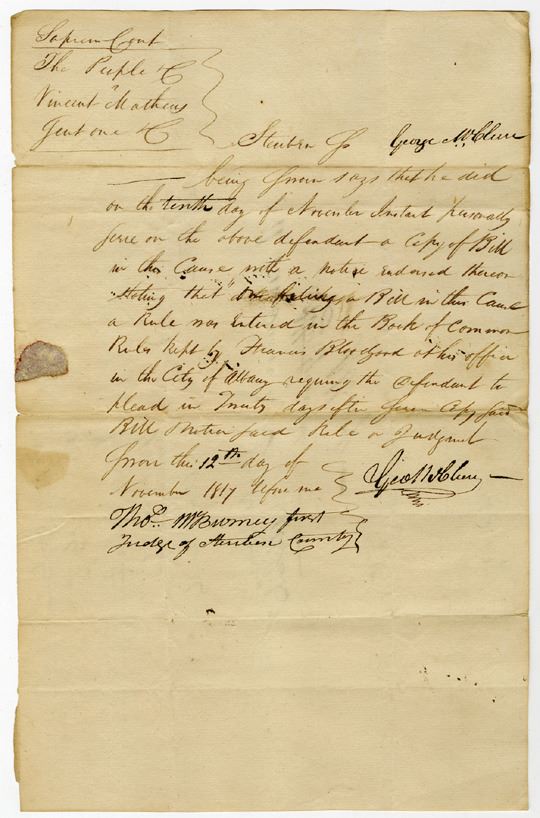 Suprem Court
The People &C
vs
Vincent Mathews
Gent one &C
Steuben Ss George McClure
being sworn says that he did
on the tenth day of November Instant personally
serve on the above defendant a Copy of Bill
in this Cause with a notice Endorsed thereon
Stating that on filing a Bill in this Cause
a Rule was Entered in the Book of Common
Rules kept by Francis Bloodgood at his office
in the City of Albany requiring the defendant to
plead in Twenty days after service Copy said
Bill & notice said Rule or Judgment
Sworn this 12th day of
November 1817 before me
Geo McClure
Thos. McBurney first
Judge of Steuben County